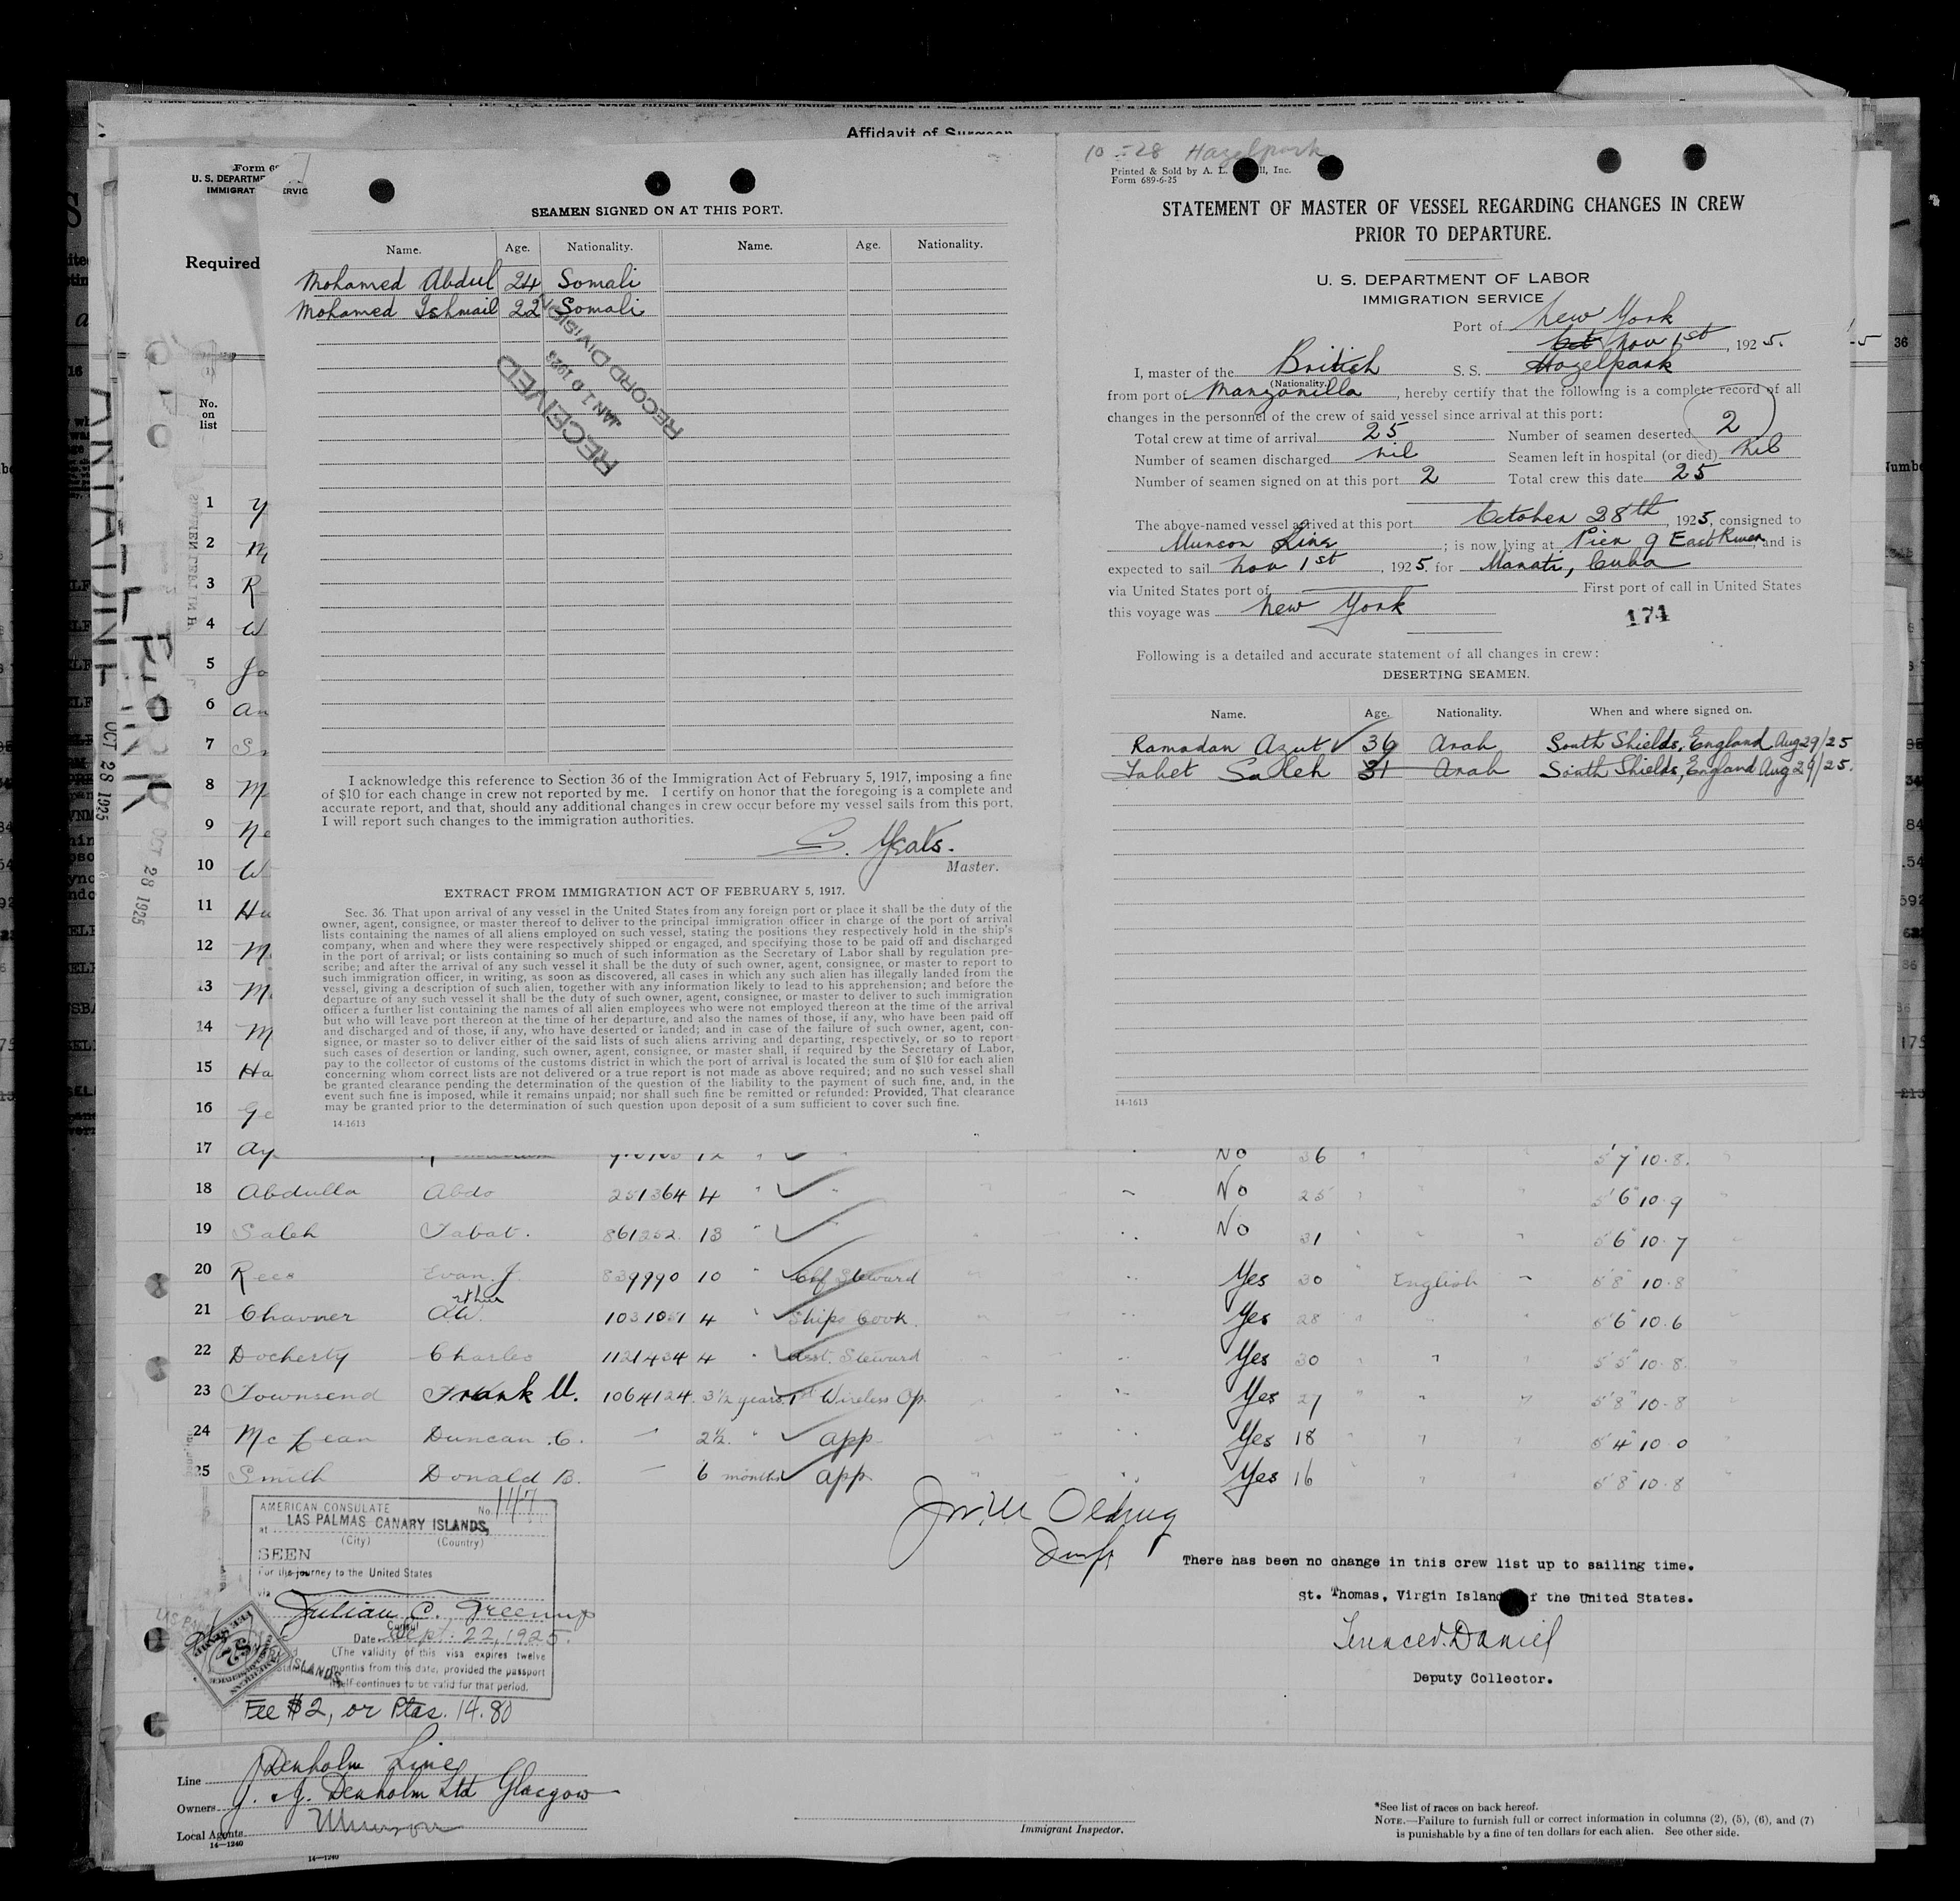 Affidavit of Surgeon
Form
U. S. DEPARTME
IMMIGRAT
ERVIC
Required
No.
on
list
SEAMEN SIGNED ON AT THIS PORT.
Name. Age. Nationality. Name. Age. Nationality.
Mohamed Abdul 24 Somali
Mohamed Ishmail 22 Somali
RECEIVED
RECORD DIVISION
I acknowledge this reference to Section 36 of the Immigration Act of February 5, 1917, imposing a fine
of $10 for each change in crew not reported by me. I certify on honor that the foregoing is a complete and
accurate report, and that, should any additional changes in crew occur before my vessel sails from this port,
I will report such changes to the immigration authorities.
S. Yeats.
Master.
EXTRACT FROM IMMIGRATION ACT OF FEBRUARY 5, 1917.
Sec. 36. That upon arrival of any vessel in the United States from any foreign port or place it shall be the duty of the
owner, agent, consignee, or master thereof to deliver to the principal immigration officer in charge of the port of arrival
lists containing the names of all aliens employed on such vessel, stating the positions they respectively hold in the ship's
company, when and where they were respectively shipped or engaged, and specifying those to be paid off and discharged
in the port of arrival; or lists containing so much of such information as the Secretary of Labor shall by regulation pre-
scribe; and after the arrival of any such vessel it shall be the duty of such owner, agent, consignee, or master to report to
such immigration officer, in writing, as soon as discovered, all cases in which any such alien has illegally landed from the
vessel, giving a description of such alien, together with any information likely to lead to his apprehension; and before the
departure of any such vessel it shall be the duty of such owner, agent, consignee, or master to deliver to such immigration
officer a further list containing the names of all alien employees who were not employed thereon at the time of the arrival
but who will leave port thereon at the time of her departure, and also the names of those, if any, who have been paid off
and discharged and of those, if any, who have deserted or landed; and in case of the failure of such owner, agent, con-
signee, or master so to deliver either of the said lists of such aliens arriving and departing, respectively, or so to report
such cases of desertion or landing, such owner, agent, consignee, or master shall, if required by the Secretary of Labor,
pay to the collector of customs of the customs district in which the port of arrival is located the sum of $10 for each alien
concerning whom correct lists are not delivered or a true report is not made as above required; and no such vessel shall
be granted clearance pending the determination of the question of the liability to the payment of such fine, and, in the
event such fine is imposed, while it remains unpaid; nor shall such fine be remitted or refunded: Provided, That clearance
may be granted prior to the determination of such question upon deposit of a sum sufficient to cover such fine.
14-1613
10-28 Hazelpark
Printed & Sold by A. L. ll, Inc.
Form 689-6-25
STATEMENT OF MASTER OF VESSEL REGARDING CHANGES IN CREW
PRIOR TO DEPARTURE.
U. S. DEPARTMENT OF LABOR
IMMIGRATION SERVICE
Port of New York
Oct Nov 1st, 1925.
I, master of the British S. S. Hazelpark
(Nationality.)
from port of Manzanilla, hereby certify that the following is a complete record of all
changes in the personnel of the crew of said vessel since arrival at this port:
Total crew at time of arrival 25 Number of seamen deserted 2
Number of seamen discharged nil Seamen left in hospital (or died) nil
Number of seamen signed on at this port 2 Total crew this date 25
The above-named vessel arrived at this port October 28th, 1925, consigned to
Munson Line; is now lying at Pier 9 East River, and is
expected to sail Nov 1st, 1925 for Manati, Cuba
via United States port of First port of call in United States
this voyage was New York
174
Following is a detailed and accurate statement of all changes in crew:
DESERTING SEAMEN.
Name. Age. Nationality. When and where signed on.
Ramadan Azut 36 Arab South Shields, England Aug 29/25
Tabet Salleh 31 Arab South Shields, England Aug 29/25.
14-1613
OCT 28 1925
OCT 28 1925
1 Y
2 M
3 R
4 W
5 Jo
6 An
7
8 M
9 Ne
10 W
11 Hu
12 M
13 M
14 M
15 Ha
16 Ge
17 Ay No 36 5'7" 10.8.
18 Abdulla Abdo 251364 4 " No 25 5'6" 10.9
19 Saleh Tabat. 861252 13 " No 31 5'6" 10.7
20 Rees Evan J. 839990 10 " Chf Steward Yes 30 English 5'8" 10.8
21 Chavner A.W. rthur 1031051 4 " Ships Cook. Yes 28 " 5'6" 10.6
22 Docherty Charles 1121434 4 " Asst. Steward Yes 30 " 5'5" 10.8.
23 Townsend Frank U. 1064124. 3½ years. 1st Wireless Op. Yes 27 " 5'8" 10.8
24 McLean Duncan C. — 2½ " App Yes 18 " 5'4" 10.0
25 Smith Donald B. — 6 months App. Yes 16 " 5'8" 10.8
AMERICAN CONSULATE No. 147
at LAS PALMAS CANARY ISLANDS,
(City) (Country)
SEEN
For the journey to the United States
via
Julian C. Greenup
Consul
Date Sept. 22, 1925.
(The validity of this visa expires twelve
months from this date, provided the passport
itself continues to be valid for that period.
Fee $2, or Ptas. 14.80
There has been no change in this crew list up to sailing time.
St. Thomas, Virgin Island f the United States.
Deputy Collector.
Line Denholm Line
Owners J. & J. Denholm Ltd Glasgow
Local Agents Munson
14—1240
14—1240
Immigrant Inspector.
*See list of races on back hereof.
NOTE.—Failure to furnish full or correct information in columns (2), (5), (6), and (7)
is punishable by a fine of ten dollars for each alien. See other side.